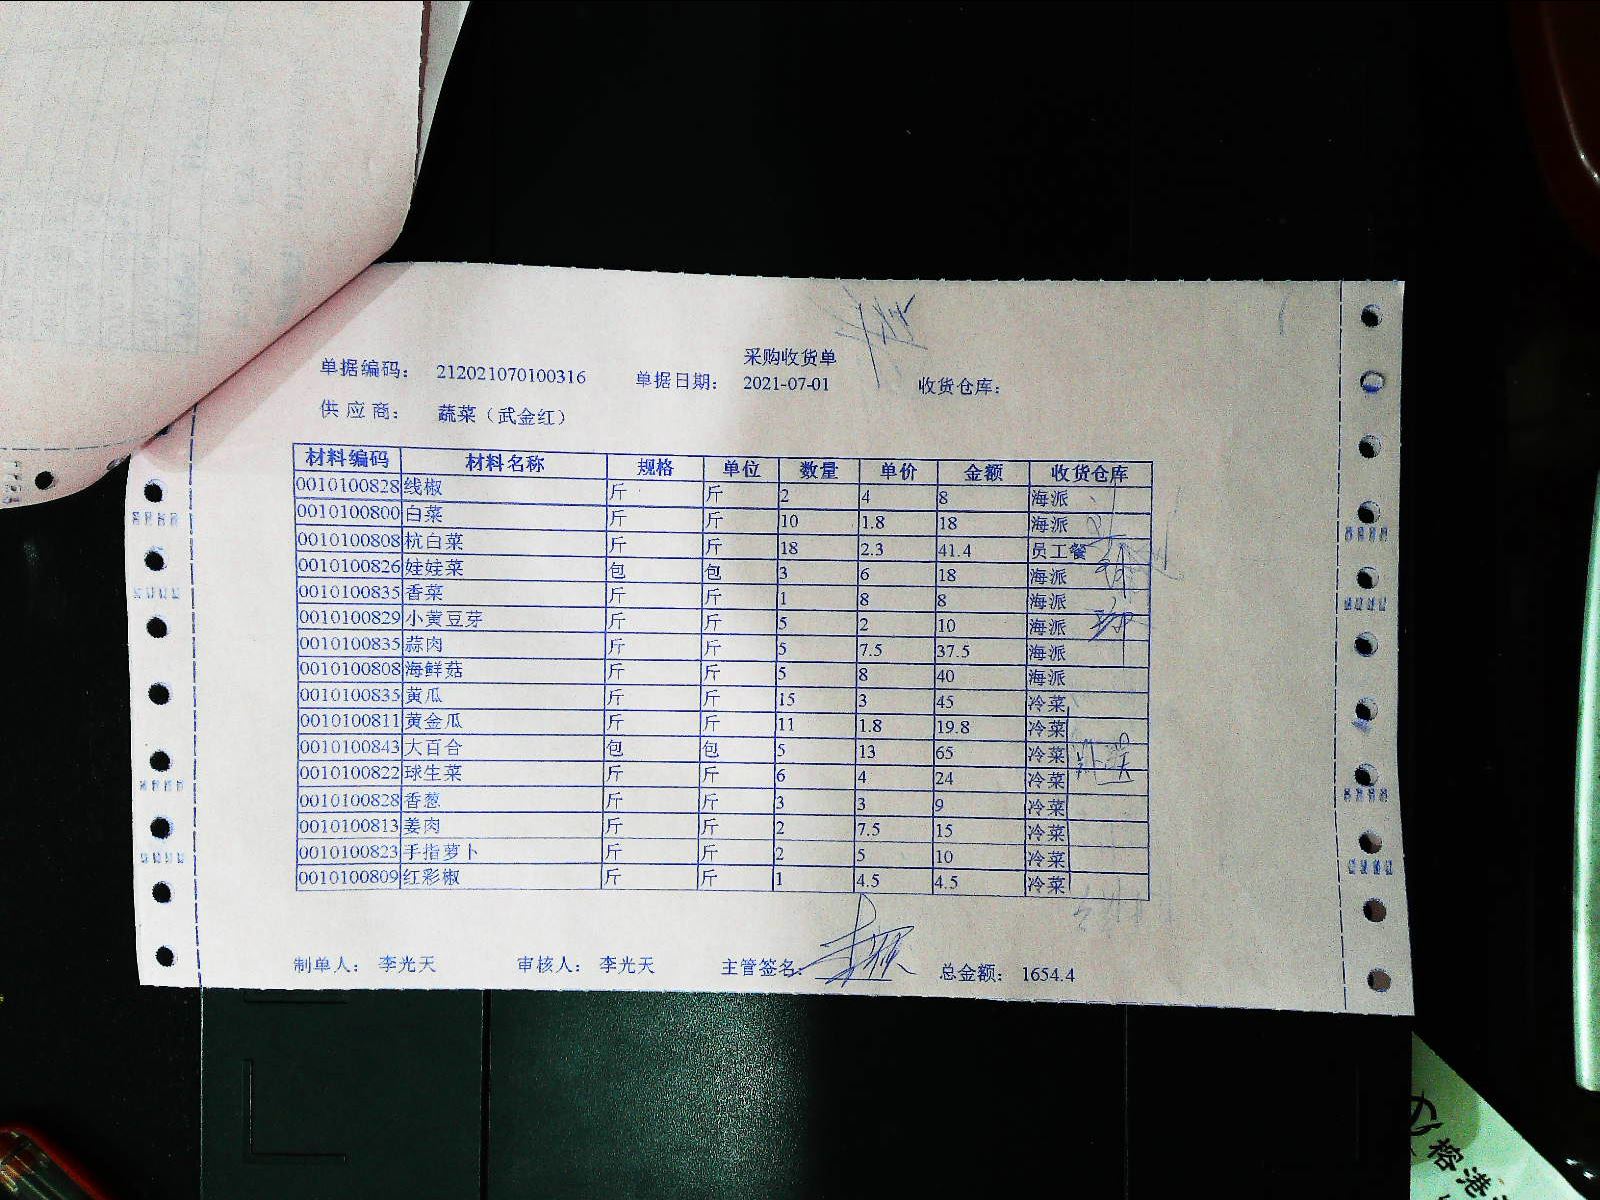 采购收货单
单据编码： 212021070100316 单据日期： 2021-07-01 收货仓库：
供 应 商： 蔬菜（武金红）
材料编码 材料名称 规格 单位 数量 单价 金额 收货仓库
0010100828 线椒 斤 斤 2 4 8 海派
0010100800 白菜 斤 斤 10 1.8 18 海派
0010100808 杭白菜 斤 斤 18 2.3 41.4 员工餐
0010100826 娃娃菜 包 包 3 6 18 海派
0010100835 香菜 斤 斤 1 8 8 海派
0010100829 小黄豆芽 斤 斤 5 2 10 海派
0010100835 蒜肉 斤 斤 5 7.5 37.5 海派
0010100808 海鲜菇 斤 斤 5 8 40 海派
0010100835 黄瓜 斤 斤 15 3 45 冷菜
0010100811 黄金瓜 斤 斤 11 1.8 19.8 冷菜
0010100843 大百合 包 包 5 13 65 冷菜
0010100822 球生菜 斤 斤 6 4 24 冷菜
0010100828 香葱 斤 斤 3 3 9 冷菜
0010100813 姜肉 斤 斤 2 7.5 15 冷菜
0010100823 手指萝卜 斤 斤 2 5 10 冷菜
0010100809 红彩椒 斤 斤 1 4.5 4.5 冷菜
制单人： 李光天 审核人： 李光天 主管签名： 总金额： 1654.4
榕港